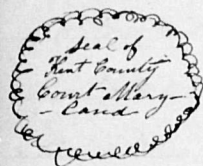 Seal of
Kent County
Court Mary-
- Land